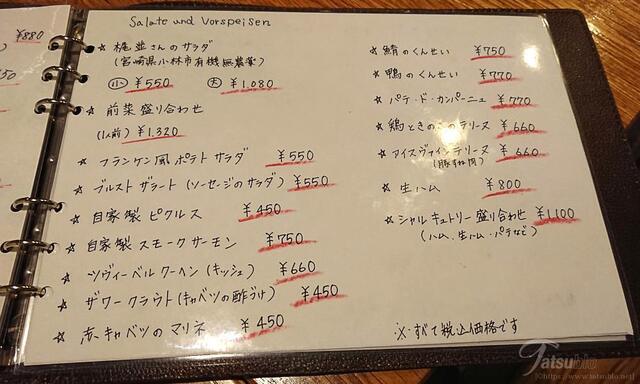 ¥880
Salate und Vorspeisen
☆ 梶並さんのサラダ
(宮崎県小林市有機無農薬)
小 ¥550 大 ¥1,080
☆ 前菜盛り合わせ
(1人前) ¥1,320
☆ フランケン風ポテトサラダ ¥550
☆ ブルストザラート(ソーセージのサラダ) ¥550
☆ 自家製ピクルス ¥450
☆ 自家製スモークサーモン ¥750
☆ ツヴィーベルクーヘン(キッシュ) ¥660
☆ ザワークラウト(キャベツの酢づけ) ¥450
☆ 赤キャベツのマリネ ¥450
☆ 鯖のくんせい ¥750
☆ 鴨のくんせい ¥770
☆ パテ・ド・カンパーニュ ¥770
☆ 鶏ときのこのテリーヌ ¥660
☆ アイスヴァインテリーヌ ¥660
(豚すね肉)
☆ 生ハム ¥800
☆ シャルキュトリー盛り合わせ ¥1,100
(ハム、生ハム・パテなど)
※すべて税込価格です
Tatsublo